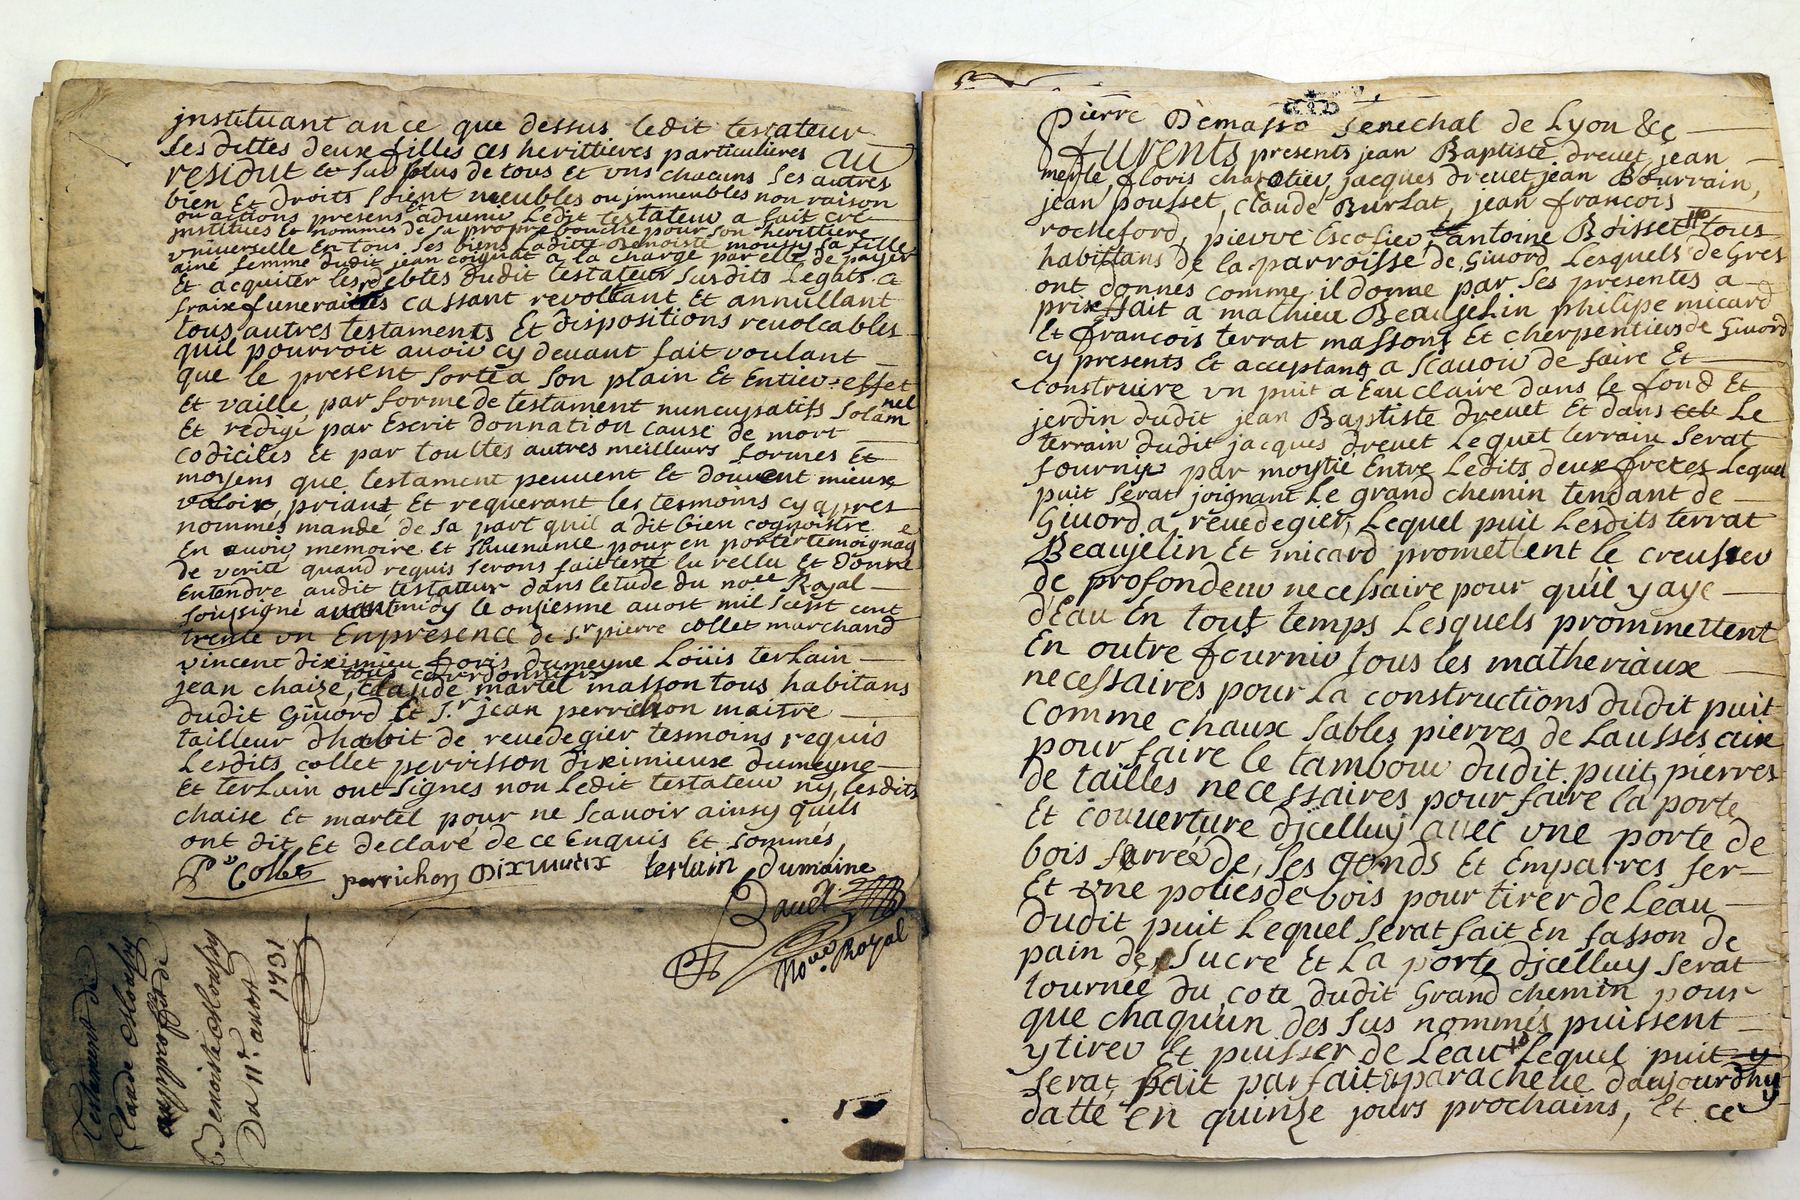 jnstituant ance que dessus ledit testateur
les dittes deux filles ces herittieres particulieres au
residut et surplus de tous et vns chacuns ses autres
bien et droits soient meubles ou jmmeubles non raison
ou actions presens et advenir ledit testateur a fait cré
jnstitues et nommés de sa propre bouche pour son herittiere
vniverselle en tous ses biens laditte Benoiste moussy sa fille
ainé femme dudit jean coignat a la charge par elle de payer
et acquiter les debtes dudit testateur susdits legats et
fraix funeraires cassant revoltant et annullant
tous autres testaments et dispositions revolcables
quil pourroit avoir cy devant fait voulant
que le present sorte a son plain et entier effet
et vaille par forme de testament nuncupatifs solamnel
et redigé par escrit donnation cause de mort
codiciles et par touttes autres meilleurs formes et
moyens que testament peuvent et doivent mieux
valoir, priant et requerant les tesmoins cy appres
nommés mandé de sa part quil a dit bien cognoistre
en avoir memoire et souvenance pour en porter temoignage
de verité quand requis serons fait leste lu rellu et donné
entendre audit testateur dans letude du nore Royal
soussigné avant midy le onsiesme aoust mil sept cent
trente vn en presence de sr pierre collet marchand
vincent diximieu floris dumeyne Loüis terlain
tous cordonniers
jean chaise, Claude martel masson tous habitans
dudit Givord et sr jean perrichon maitre
tailleur dhabit de rivedegier tesmoins requis
Lesdits collet perrisson diximieux dumeyne
et terlain ont signés non ledit testateur ny lesdits
chaise et martel pour ne scavoir ainsy quils
ont dit et declaré de ce enquis et sommés
Pe Collet perrichon Diximieux terlain dumaine
Nore Royal
Testament de
Claude Moussy
au proffit de
Benoiste Moussy
Du 11e. aoust
1731
Pierre Demasso senechal de Lyon &c
furents presents jean Baptiste drevet jean
merle floris charotier jacques drevet jean Bourrain,
jean pousset, claude Burlat, jean francois
rocheford, pierre Escofier antoine Boisset tous
habittans de la parroisse de Givord Lesquels de Gres
ont donnés comme il donne par ses presentes a
prix fait a mathieu Beaujelin philipe micard
et francois terrat massons et cherpentiers de Givord
cy presents et acceptans a scavoir de faire et
construire vn puit a Eau claire dans le fond et
jerdin dudit jean Baptiste drevet et dans Le
terrain dudit jacques drevet Lequel terrain serat
fourny par moytie entre Ledits deux freres Lequel
puit serat joignant Le grand chemin tendant de
Givord a rivedegier, Lequel puit Lesdits terrat
Beaujelin et micard promettent le creuser
de profondeur necessaire pour quil y aye
d'Eau en tout temps Lesquels prommettent
En outre fournir tous les matheriaux
necessaires pour la constructions dudit puit
comme chaux sables pierres de Lausses aux
pour faire le tambour dudit puit, pierres
de tailles necessaires pour faire la porte
et couverture djcelluy avec vne porte de
bois ferrée de, ses gonds et Emparres fer
et vne poulies de bois pour tirer de Leau
dudit puit Lequel serat fait en fasson de
pain de sucre et La porte djcelluy serat
tournée du coté dudit Grand chemin pour
que chaqu'un des sus nommés puissent
y tirer et puisser de Leau Lequel puit
serat fait parfait & parachevé daujourdhuy
datte en quinze jours prochains, et ce